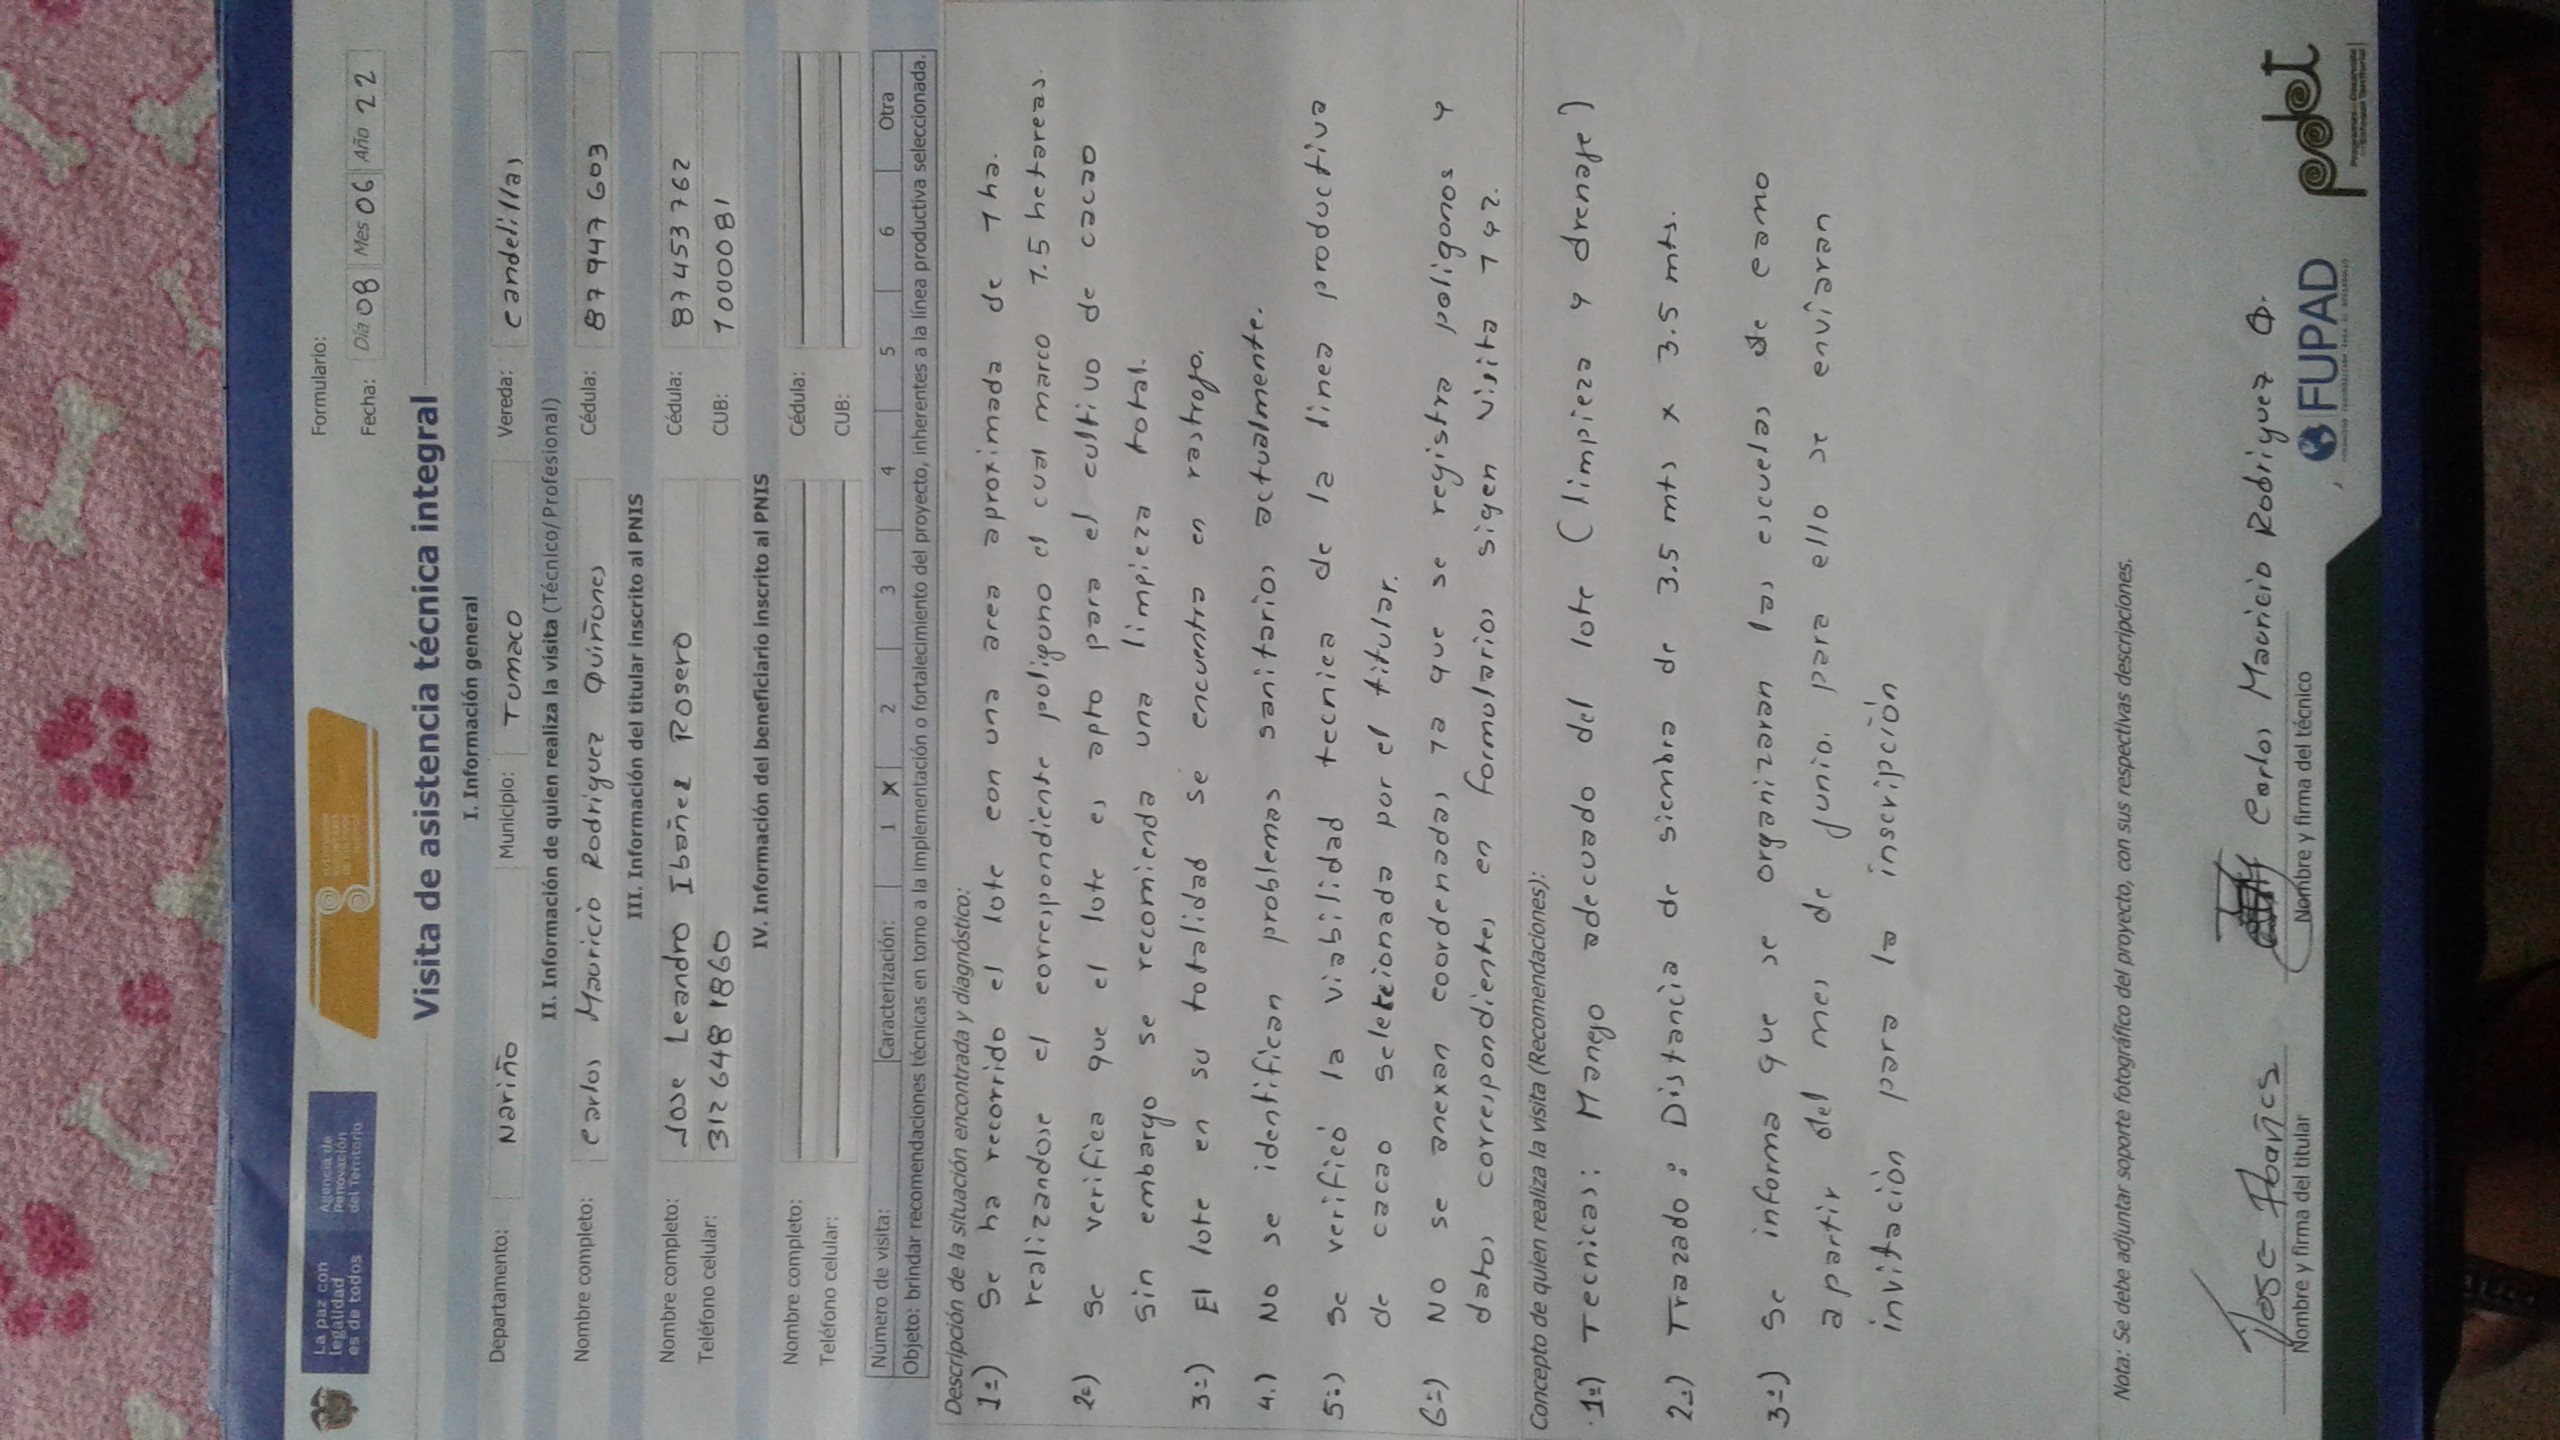 La paz con
legalidad
es de todos
Agencia de
Renovación
del Territorio
Formulario:
Fecha: Día 08 Mes 06 Año 22
Visita de asistencia técnica integral
I. Información general
Departamento: Nariño Municipio: Tumaco Vereda: candelillas
II. Información de quien realiza la visita (Técnico/Profesional)
Nombre completo: carlos Mauricio Rodriguez Quiñones Cédula: 87947603
III. Información del titular inscrito al PNIS
Nombre completo: Jose Leandro Ibañez Rosero Cédula: 87453762
Teléfono celular: 312 648 1860 CUB: 1000081
IV. Información del beneficiario inscrito al PNIS
Nombre completo: Cédula:
Teléfono celular: CUB:
Número de visita: Caracterización: 1 X 2 3 4 5 6 Otra
Objeto: brindar recomendaciones técnicas en torno a la implementación o fortalecimiento del proyecto, inherentes a la línea productiva seleccionada.
Descripción de la situación encontrada y diagnóstico:
1=) Se ha recorrido el lote con una area aproximada de 1 ha.
realizandose el correspondiente poligono el cual marco 1.5 hetareas.
2=) Se verifica que el lote es apto para el cultivo de cacao
sin embargo se recomienda una limpieza total.
3=) El lote en su totalidad se encuentra en rastrojo.
4.) No se identifican problemas sanitarios actualmente.
5=) Se verificó la viabilidad tecnica de la linea productiva
de cacao seleteionada por el titular.
6=) No se anexan coordenadas ya que se registra poligonos y
datos correspondientes en formularios sigen visita 1 y 2.
Concepto de quien realiza la visita (Recomendaciones):
1=) Tecnicas: Manejo adecuado del lote (limpieza y drenaje)
2=) Trazado: Distancia de siembra de 3.5 mts x 3.5 mts.
3=) Se informa que se organizaran las escuelas de camo
a partir del mes de junio. para ello se enviaran
invitación para la inscripción
Nota: Se debe adjuntar soporte fotográfico del proyecto, con sus respectivas descripciones.
Jose Ibañes
Nombre y firma del titular
Carlos Mauricio Rodriguez Q.
Nombre y firma del técnico
FUPAD
pdet